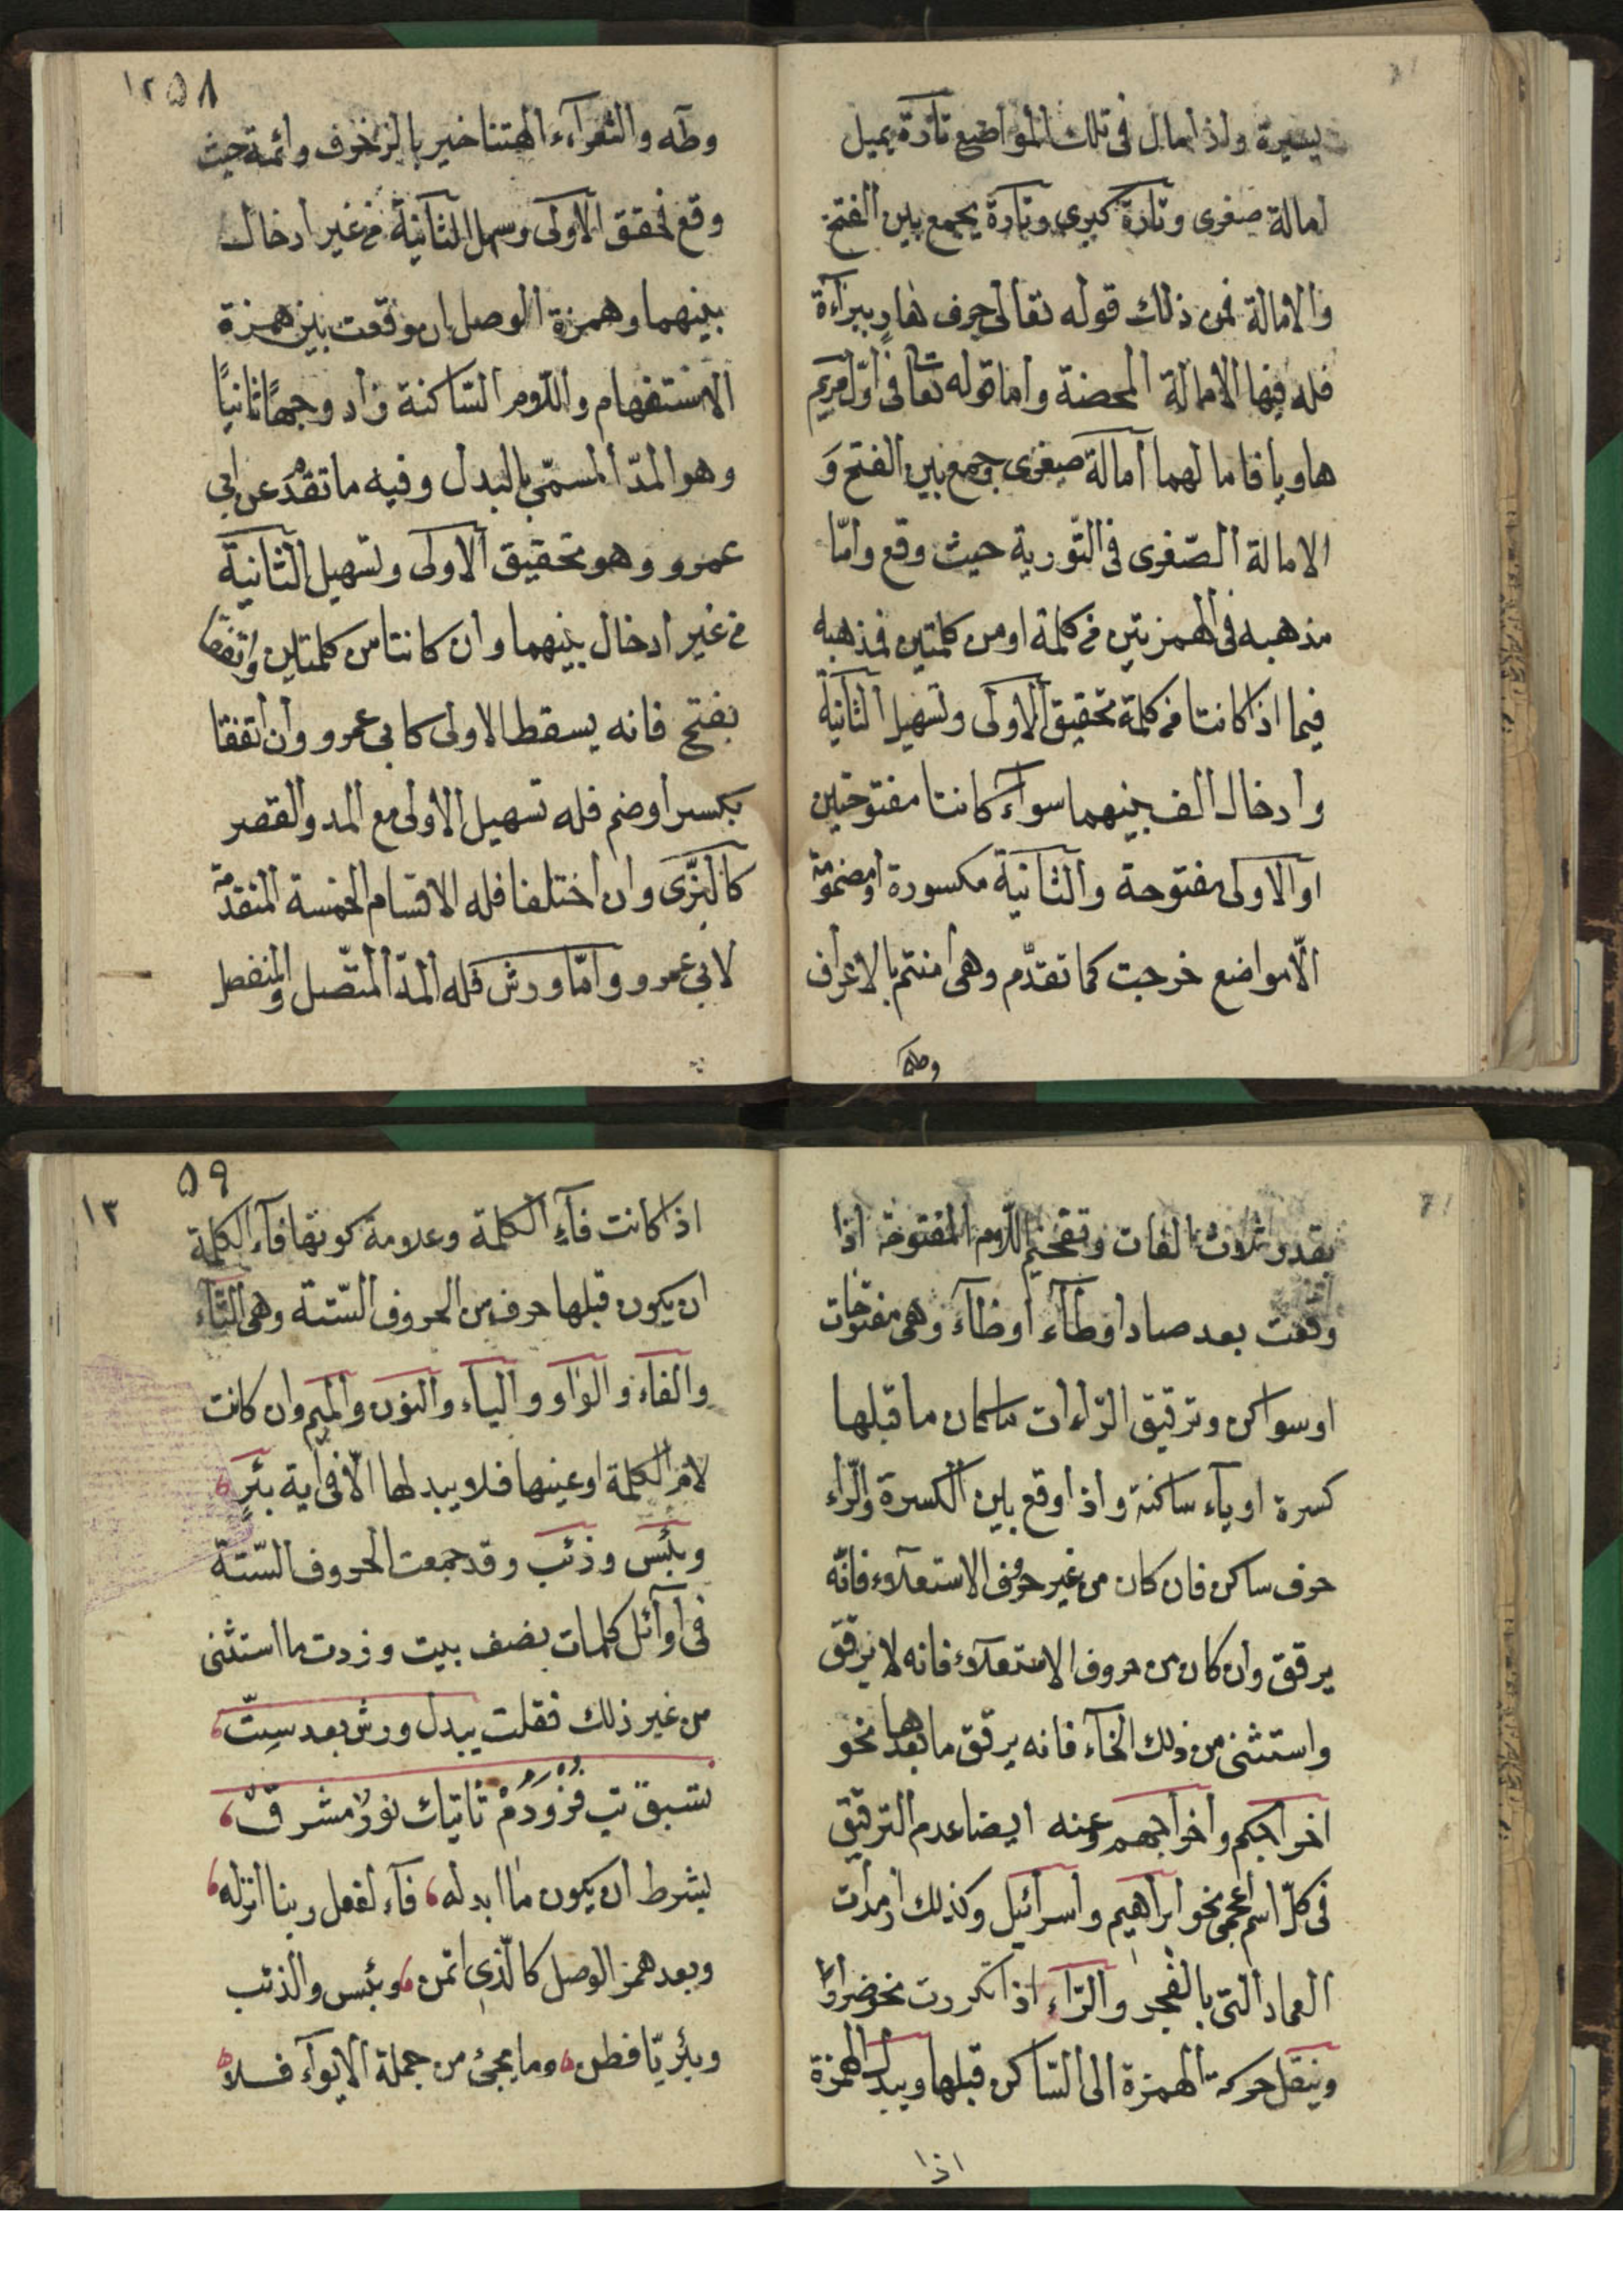 يسيرة واذا مال فى تلك المواضع تارة يميل
امالة صغرى وتارة كبرى وتارة يجمع بين الفتح
والامالة فمن ذلك قوله تعالى جرف هارٍ ببرآءة
فله فيها الامالة المحضة واما قوله تعالى فى اول مريم
هاويا فامالهما امالة صغرى وجمع بين الفتح وَ
الامالة الصّغرى فى التّورية حيث وقع وامّا
مذهبه فى الهمزتين من كلمة او من كلمتين فمذهبه
فيما اذا كانتا من كلمة تحقيق الاولى وتسهيل الثانية
وادخال الف بينهما سوآء كانتا مفتوحتين
او الاولى مفتوحة والثانية مكسورة او مضمومة
الّا مواضع خرجت كما تقدّم وهى امنتم بالاعراف
وطه
١٢ ٥٨
وطه والشعرآء ءالهتنا خير بالزخرف وائمة حيث
وقع فحقق الاولى وسهل الثانية من غير ادخال
بينهما وهمزة الوصل ان وقعت بين همزة
الاستفهام واللّام السّاكنة زاد وجهًا ثانيًا
وهو المدّ المسمّى بالبدل وفيه ما تقدّم عن ابى
عمرو وهو تحقيق الاولى وتسهيل الثانية
من غير ادخال بينهما وان كانتا من كلمتين واتفقتا
بفتح فانه يسقط الاولى كابى عمرو وان اتفقا
بكسر اوضم فله تسهيل الاولى مع المد والقصر
كالبزّى وان اختلفا فله الاقسام الخمسة المتقدمة
لابى عمرو وامّا ورش فله المدّ المتّصل والمنفصل
بقدر ثلاث الفات وتفخيم اللّام المفتوحة اذا
وقعت بعد صاد اوطآء اوظآء وهى مفتوحات
او سواكن وترقيق الرّاءات ما كان ما قبلها
كسرة اويآء ساكنة واذا وقع بين الكسرة والرّاء
حرف ساكن فان كان من غير حروف الاستعلاء فانّه
يرقق وان كان من حروف الاستعلاء فانه لا يرقق
واستثنى من ذلك الخآء فانه يرقق ما بعدها نحو
اخراجكم واخراجهم وعنه ايضا عدم الترقيق
فى كلّ اسم اعجمى نحو ابراهيم واسرائيل وكذلك ارم ذات
العماد التى بالفجر والرّاء اذا تكررت نحو ضرارا
وينقل حركة الهمزة الى السّاكن قبلها ويبدل الهمزة
اذا
١٣ ٥٩
اذا كانت فآء الكلمة وعلامة كونها فآء الكلمة
ان يكون قبلها حرف من الحروف السّتة وهى التّآء
والفآء والواو واليآء والنون والميم وان كانت
لام الكلمة او عينها فلا يبدلها الّا فى اية بئر
وبئس وذئب وقد جمعت الحروف السّتة
فى اوآئل كلمات بضف بيت وزدت ما استثنى
من غير ذلك فقلت يبدل ورش بعد ستّ
تسبق تب فز ودم ثانيك نور مشرق
بشرط ان يكون ما ابدله فآء لفعل ربنا انزله
وبعد همز الوصل كالّذى ائتمن وبئس والذئب
وبئر يّا فطن وما يجئ من جملة الايوآء فلا